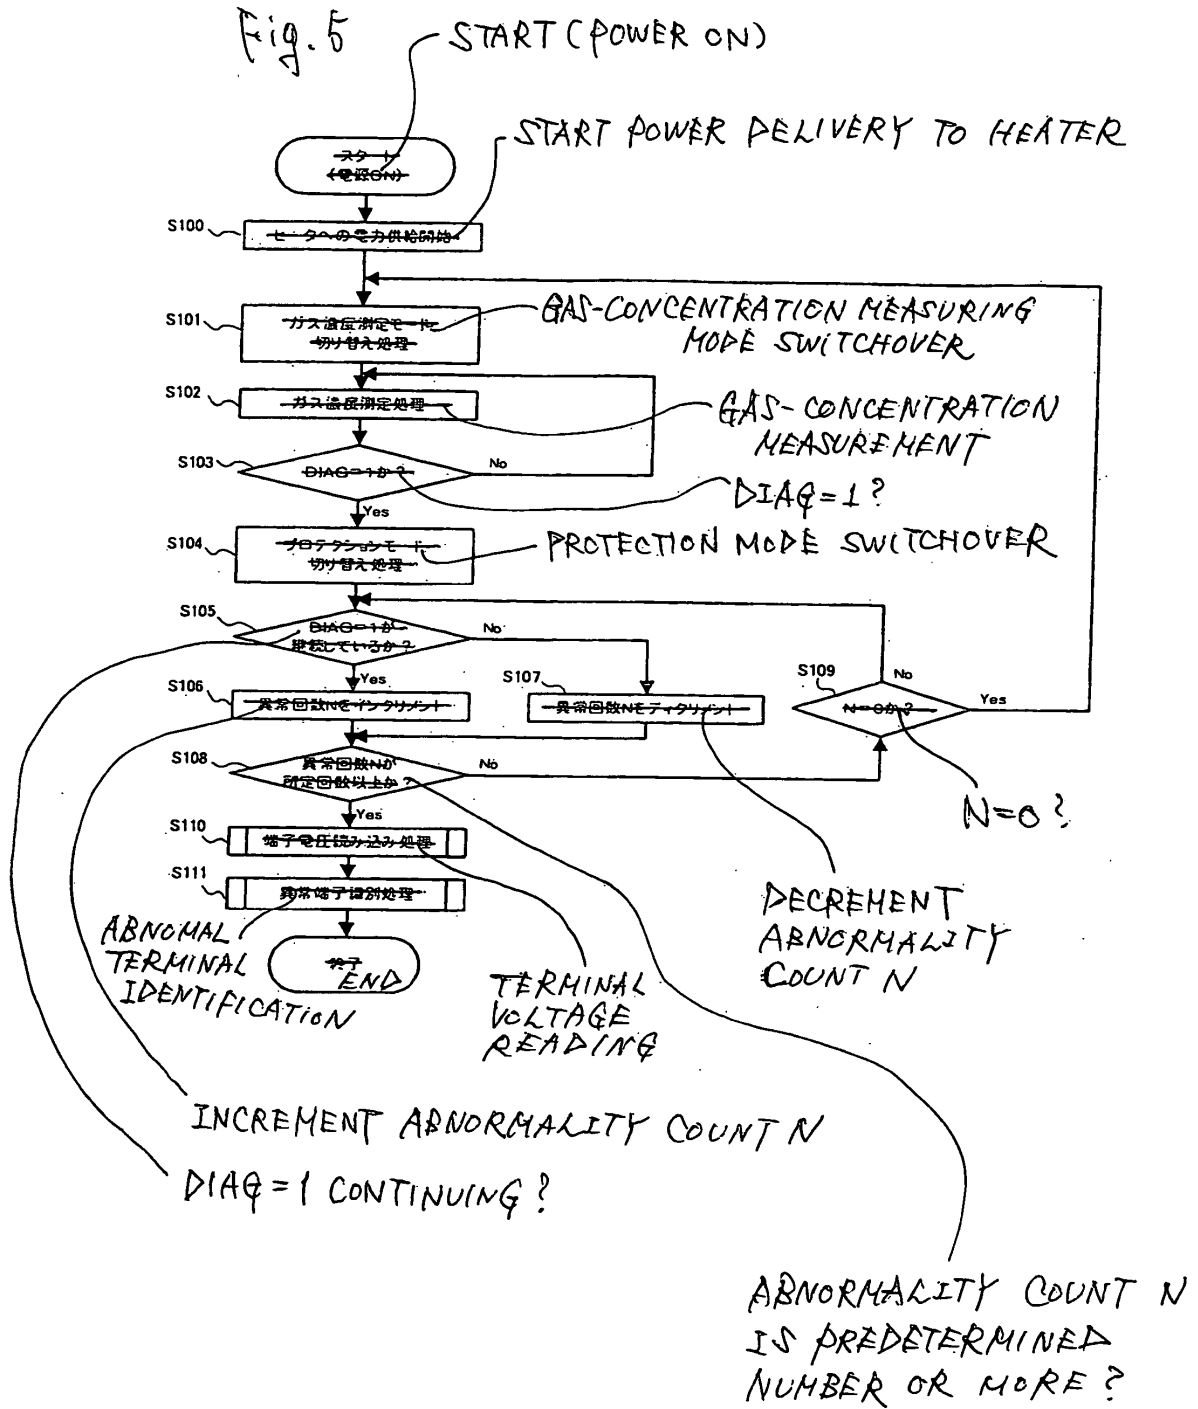 Fig. 5
START (POWER ON)
START POWER DELIVERY TO HEATER
スタート
(電源ON)
S100
ヒータへの電力供給開始
S101
ガス濃度測定モード
切り替え処理
GAS-CONCENTRATION MEASURING
MODE SWITCHOVER
S102
ガス濃度測定処理
GAS-CONCENTRATION
MEASUREMENT
S103
DIAG=1か?
No
DIAG=1?
Yes
S104
プロテクションモード
切り替え処理
PROTECTION MODE SWITCHOVER
S105
DIAG=1が
継続しているか?
No
Yes
S106
異常回数Nをインクリメント
S107
異常回数Nをディクリメント
S109
No
N=0か?
Yes
S108
異常回数Nが
所定回数以上か?
No
Yes
N=0?
S110
端子電圧読み込み処理
S111
異常端子識別処理
DECREMENT
ABNORMALITY
COUNT N
ABNOMAL
TERMINAL
IDENTIFICATION
終了
END
TERMINAL
VOLTAGE
READING
INCREMENT ABNORMALITY COUNT N
DIAG=1 CONTINUING?
ABNORMALITY COUNT N
IS PREDETERMINED
NUMBER OR MORE?